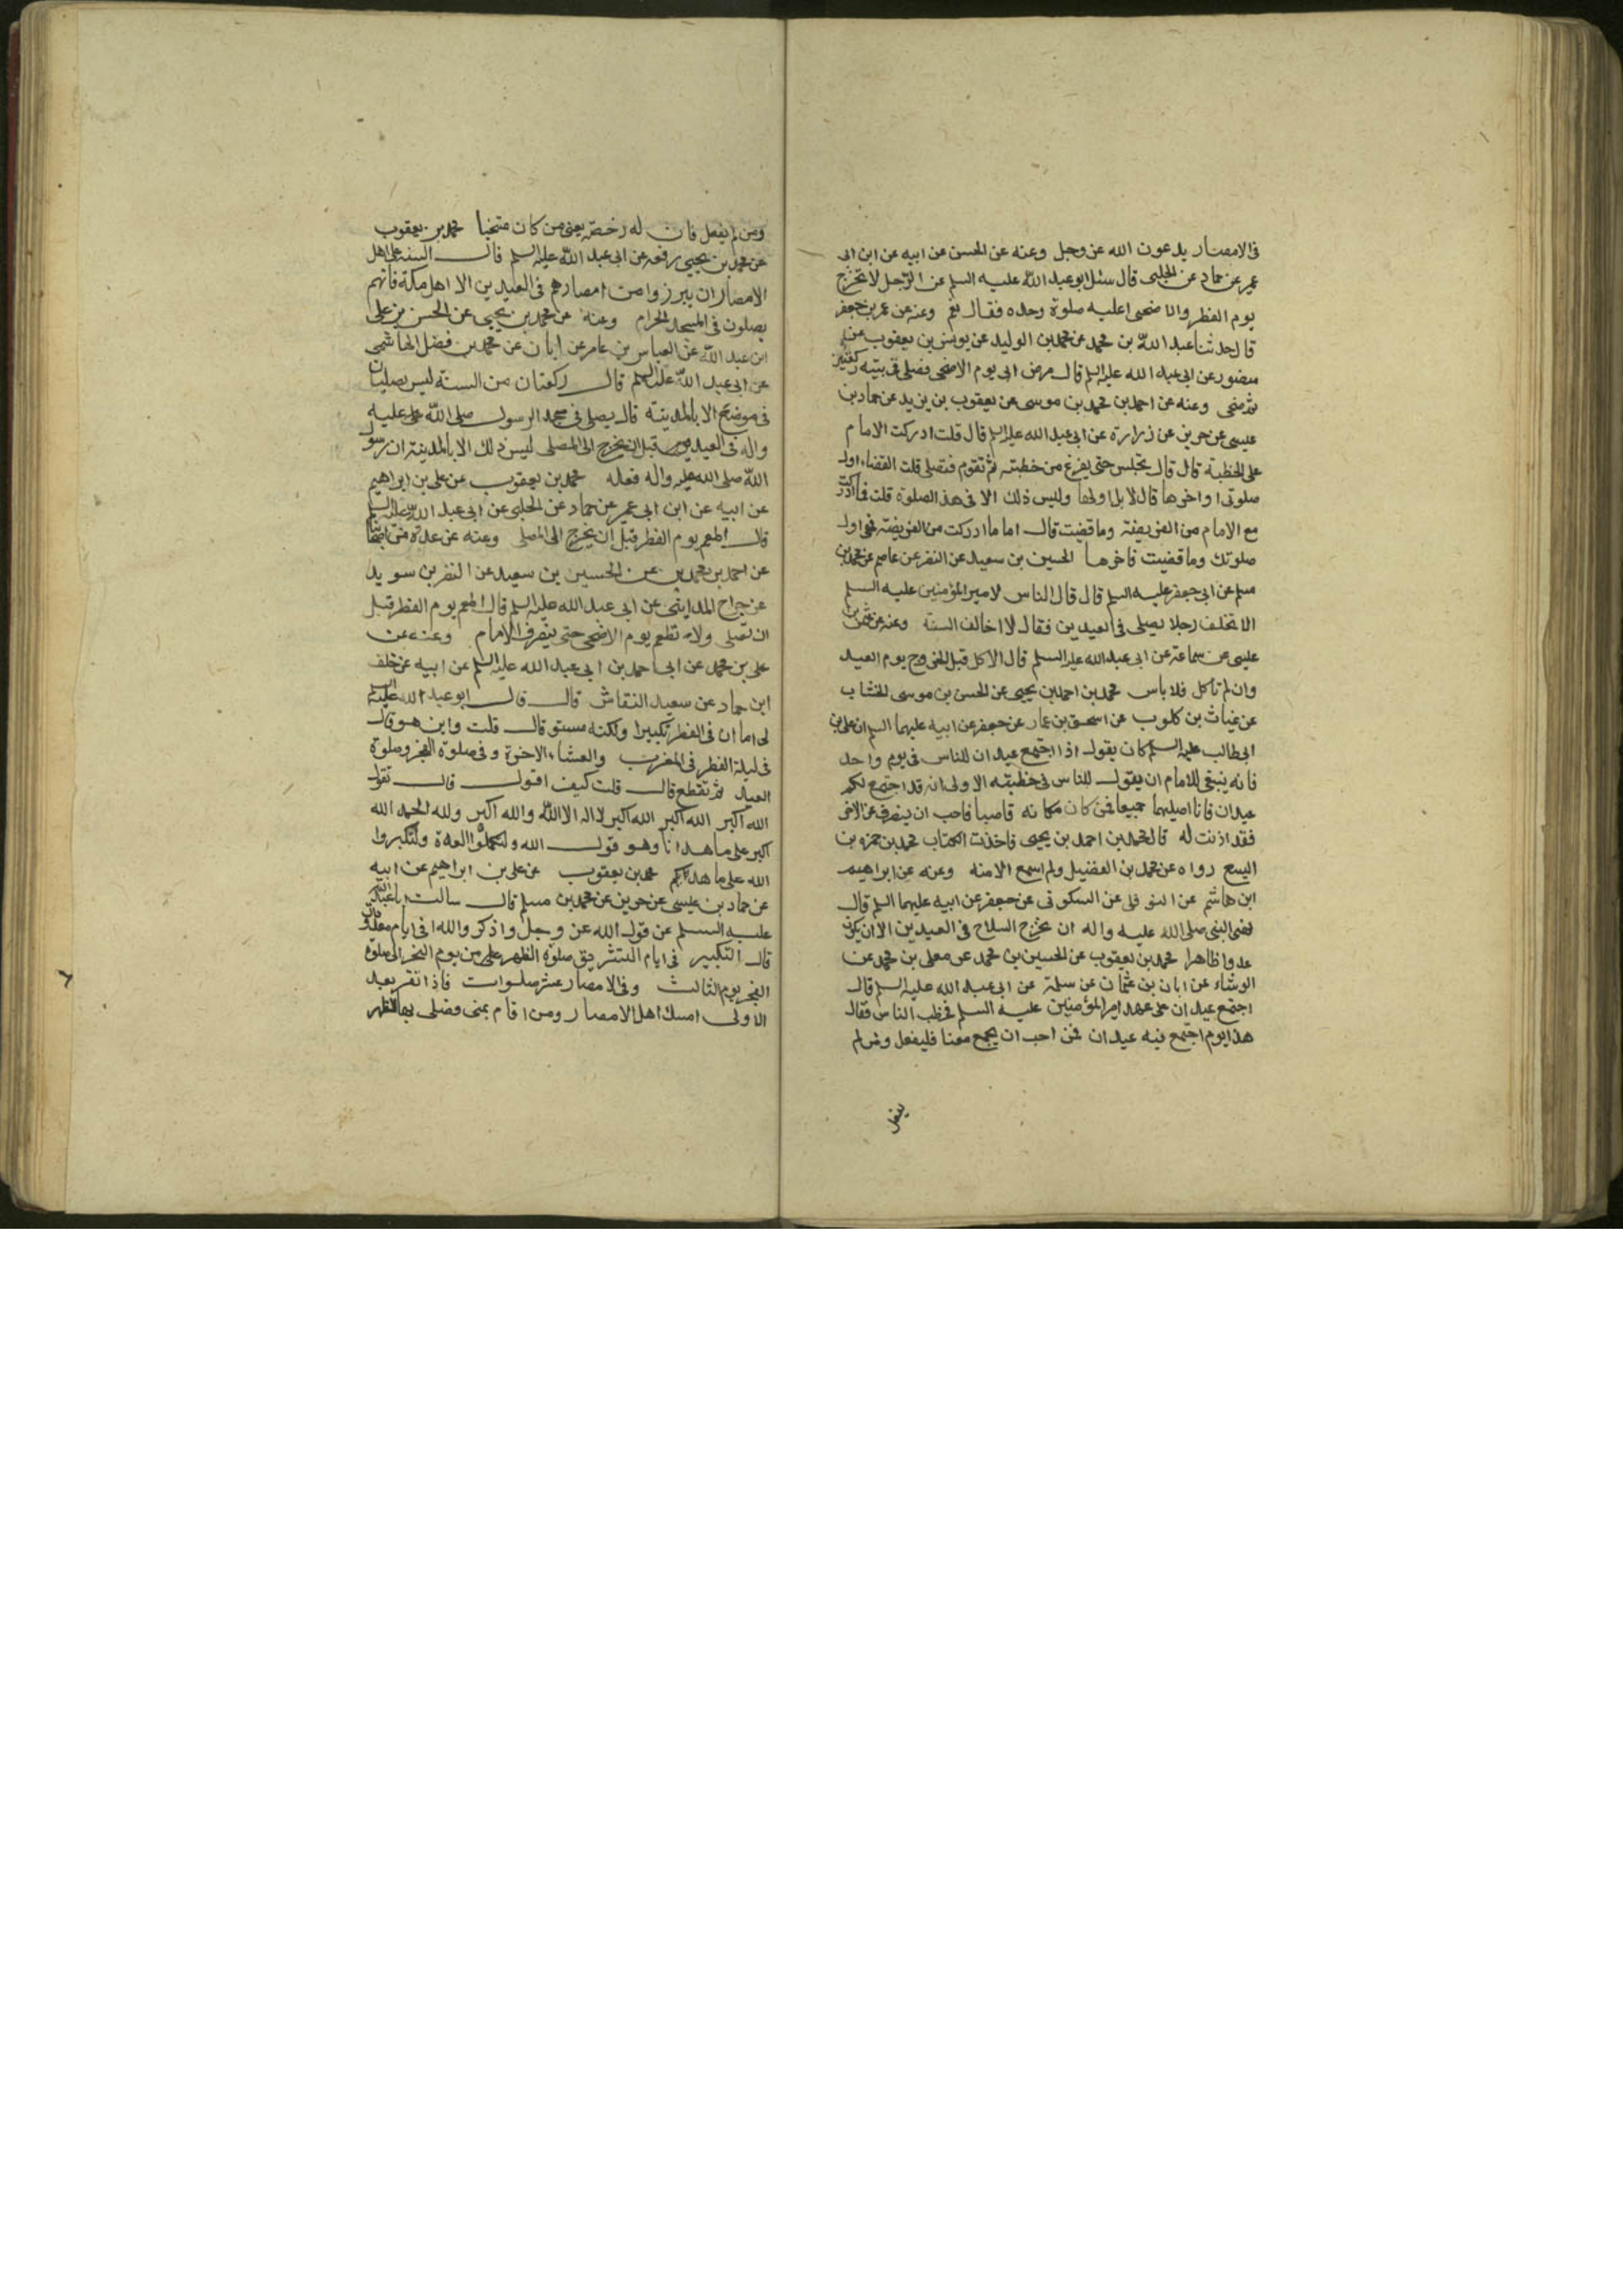 فى الامصار يدعون الله عز وجل وعنه عن الحسن عن ابيه عن ابن ابى
عمير عن حماد عن الحلبى قال سئل ابو عبد الله عليه السلم عن الرجل لا يخرج
يوم الفطر والاضحى اعليه صلوة وحده فقال نعم وعنه عن عمر بن جعفر
قال حدثنا عبد الله بن محمد عن محمد بن الوليد عن يونس بن يعقوب عن
منصور عن ابى عبد الله عليه السلم قال مرض ابى يوم الاضحى فصلى فى بيته ركعتين
ثم ضحى وعنه عن احمد بن محمد بن موسى عن يعقوب بن يزيد عن حماد بن
عيسى عن حريز عن زرارة عن ابى عبد الله عليه السلم قال قلت ادركت الامام
على الخطبة قال قال تجلس حتى يفرغ من خطبته ثم تقوم فتصلى قلت القضاء اول
صلوتى او اخرها قال لا بل اولها وليس ذلك الا فى هذه الصلوة قلت فما ادركت
مع الامام من الفريضة وما قضيت قال اما ما ادركت من الفريضة فهو اول
صلوتك وما قضيت فاخرها الحسين بن سعيد عن النضر عن عاصم عن محمد بن
مسلم عن ابى جعفر عليه السلم قال قال الناس لامير المؤمنين عليه السلم
الا تخلف رجلا يصلى فى العيدين فقال لا اخالف السنة وعنه عن عثمن بن
عليسى عن سماعة عن ابى عبد الله عليه السلم قال الاكل قبل الخروج يوم العيد
وان لم تاكل فلا باس محمد بن احمد بن يحيى عن الحسن بن موسى الخشاب
عن غياث بن كلوب عن اسحق بن عمار عن جعفر عن ابيه عليهما السلم ان على بن
ابى طالب عليه السلم كان يقول اذا اجتمع عيدان للناس فى يوم واحد
فانه ينبغى للامام ان يقول للناس فى خطبته الاولى انه قد اجتمع لكم
عيدان فانا اصليهما جميعا فمن كان مكانه قاصيا فاحب ان ينصرف عن الاخر
فقد اذنت له قال محمد بن احمد بن يحيى فاخذت الكتاب محمد بن حمزه بن
اليسع رواه عن محمد بن الفضيل ولم اسمع الا منه وعنه عن ابراهيم
ابن هاشم عن النوفلى عن السكونى عن جعفر عن ابيه عليهما السلم قال
نهى النبى صلى الله عليه واله ان يخرج السلاح فى العيدين الا ان يكون
عدوا ظاهرا محمد بن يعقوب عن الحسين بن محمد عن معلى بن محمد عن
الوشاء عن ابان بن عثمان عن سلمة عن ابى عبد الله عليه السلم قال
اجتمع عيدان على عهد امير المؤمنين عليه السلم فخطب الناس فقال
هذا يوم اجتمع فيه عيدان فمن احب ان يجمع معنا فليفعل ومن لم
يفعل
ومن لم يفعل فان له رخصة يعنى من كان متنحيا محمد بن يعقوب
عن محمد بن يحيى رفعه عن ابى عبد الله عليه السلم قال السنة على اهل
الامصار ان يبرزوا من امصارهم فى العيدين الا اهل مكة فانهم
يصلون فى المسجد الحرام وعنه عن محمد بن يحيى عن الحسن بن على
ابن عبد الله عن العباس بن عامر عن ابان عن محمد بن فضل الهاشمى
عن ابى عبد الله عليه السلم قال ركعتان من السنة ليس يصليان
فى موضع الا بالمدينة قال يصلى فى مسجد الرسول صلى الله عليه
واله فى العيد قبل ان يخرج الى المصلى ليس ذلك الا بالمدينة ان رسول
الله صلى الله عليه واله فعله محمد بن يعقوب عن على بن ابراهيم
عن ابيه عن ابن ابى عمير عن حماد عن الحلبى عن ابى عبد الله عليه السلم
قال اطعم يوم الفطر قبل ان يخرج الى المصلى وعنه عن عدة من اصحابنا
عن احمد بن محمد عن الحسين بن سعيد عن النضر بن سويد
عن جراح المداينى عن ابى عبد الله عليه السلم قال اطعم يوم الفطر قبل
ان تصلى ولا تطعم يوم الاضحى حتى ينصرف الامام وعنه عن
على بن محمد عن ابى احمد بن ابى عبد الله عليه السلم عن ابيه عن خلف
ابن حماد عن سعيد النقاش قال قال ابو عبد الله عليه السلم
لى اما ان فى الفطر تكبيرا ولكنه مستو قال قلت واين هو قال
فى ليلة الفطر فى المغرب والعشاء الاخرة وفى صلوة الفجر وصلوة
العيد ثم تقطع قال قلت كيف اقول قال تقول
الله اكبر الله اكبر الله اكبر لا اله الا الله والله اكبر ولله الحمد الله
اكبر على ما هدانا وهو قول الله ولتكملوا العدة ولتكبروا
الله على ما هداكم محمد بن يعقوب عن على بن ابراهيم عن ابيه
عن حماد بن عيسى عن حريز عن محمد بن مسلم قال سالت ابا عبد الله
عليه السلم عن قول الله عز وجل واذكروا الله فى ايام معدودات
قال التكبير فى ايام التشريق صلوة الظهر من يوم النحر الى صلوة
الفجر يوم الثالث وفى الامصار عشر صلوات فاذا نفر بعد
الاولى امسك اهل الامصار ومن اقام بمنى فصلى بها الظهر